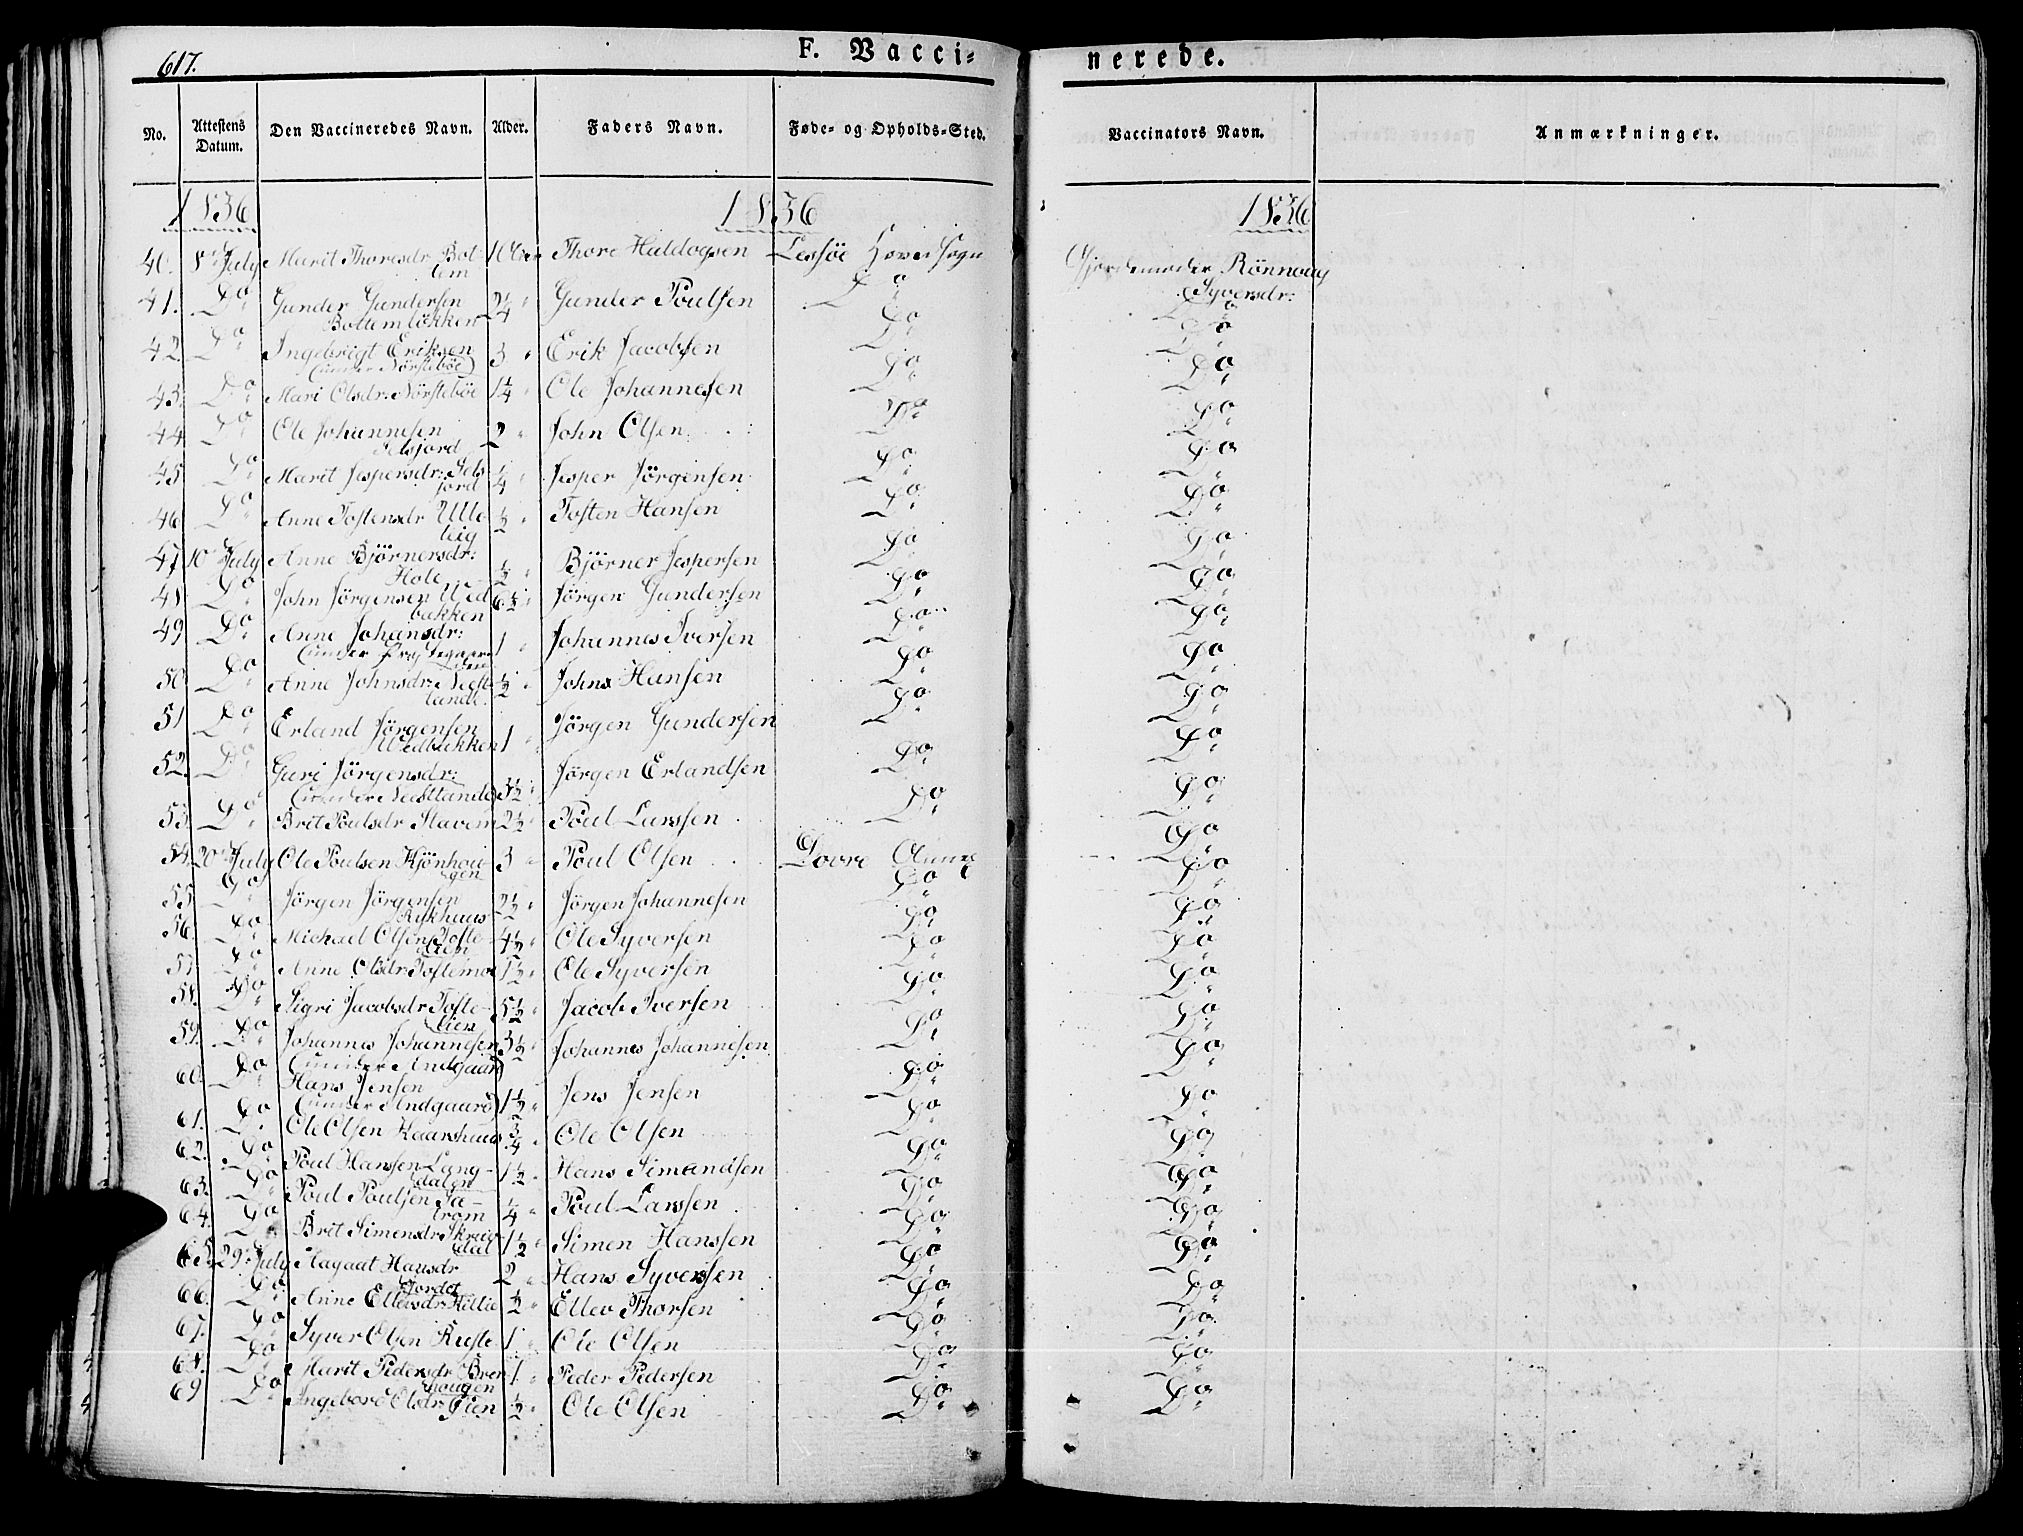 617.
F. Vacci=
nerede.
No. Attestens Datum. Den Vaccineredes Navn. Alder. Faders Navn. Føde= og Opholds=Sted. Vaccinators Navn. Anmærkninger.
1836 1836 1836
40. 8de July Marit Thoresdr Bot- Thore Haldogsen Lessøe Hoved Sogn Gjordemoder Rönnoug
tem Syversdr:
41. Do Gunder Gundersen 2 1/4 Gunder Poulsen Do Do
Bottemlökken
42. Do Ingebrigt Eriksen 3 Erik Jacobsen Do Do
(under Nörsteböe)
43. Do Mari Olsdr: Nörsteböe 1 1/4 Ole Johannesen Do Do
44 Do Ole Johannesen 2 John Olsen Do Do
Selsjord
45 Do Marit Jespersdr: Sels 1/4 Jesper Jörgensen Do Do
jord
46 Do Anne Tostensdr Ulle 1/2 Tosten Hansen Do Do
lig
47 10de July Anne Björnersdr: 1/2 Björner Jespersen Do Do
Hole
48 Do John Jörgensen Wed 6 1/2 Jörgen Gundersen Do Do
bakken
49 Do Anne Johansdr: 1 Johannes Iversen Do Do
50 Do Anne Johnsdr: Neest 1/2 Johns Hansen Do Do
lande
51 Do Erland Jörgensen 1 Jörgen Gundersen Do Do
Wedbakken
52. Do Guri Jörgensdr: 3 1/2 Jörgen Erlandsen Do Do
(under Neestlande)
53. Do Brit Poulsdr Slavem 2 1/2 Poul Larssen Do Do
54. 20de July Ole Poulsen Kjönhou 3 Poul Olsen Dovre Annex Do
gen
55. Do Jörgen Jörgensen 2 1/2 Jörgen Johannesen Do Do
Rykhuus
56. Do Michael Olsen Tofte 4 1/2 Ole Syversen Do Do
lien
57 Do Anne Olsdr: Toftemoe 1 1/2 Ole Syversen Do Do
58. Do Sigri Jacobsdr Tofte 5 1/2 Jacob Iversen Do Do
lien
59. Do Johannes Johannesen 3 1/2 Johannes Johannesen Do Do
(under Andgaard)
60. Do Hans Jensen 1 1/2 Jens Jensen Do Do
(under Andgaard)
61. Do Ole Olsen Kaarshuus 3/4 Ole Olsen Do Do
62. Do Poul Hansen Lang- 1 1/2 Hans Simandsen Do Do
dalen
63. Do Poul Poulsen Ja- 1/4 Poul Larssen Do Do
trøm
64. Do Brit Simensdr: 1 1/2 Simen Hanssen Do Do
dal
65. 29de July Aagaat Hansdr 2 Hans Syversen Do Do
Jordet
66. Do Anne Ellevsdr: Hillie 1/2 Ellev Thorsen Do Do
67. Do Syver Olsen Ruste 1 Ole Olsen Do Do
68. Do Marit Pedersdr Bren 1 Peder Pedersen Do Do
hougen
69 Do Ingebore Olsdr: Lien 1/2 Ole Olsen Do Do